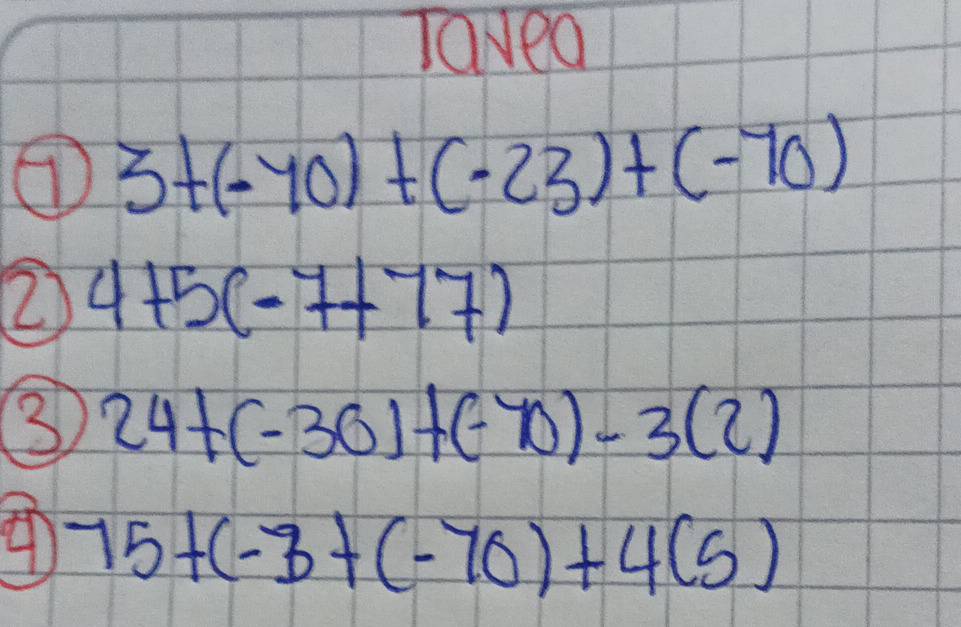 Tarea
① 3+(-10)+(-23)+(-10)
② 4+5(-7+17)
③ 24+(-30)+(-10)-3(2)
④ 15+(-3+(-10)+4(5)